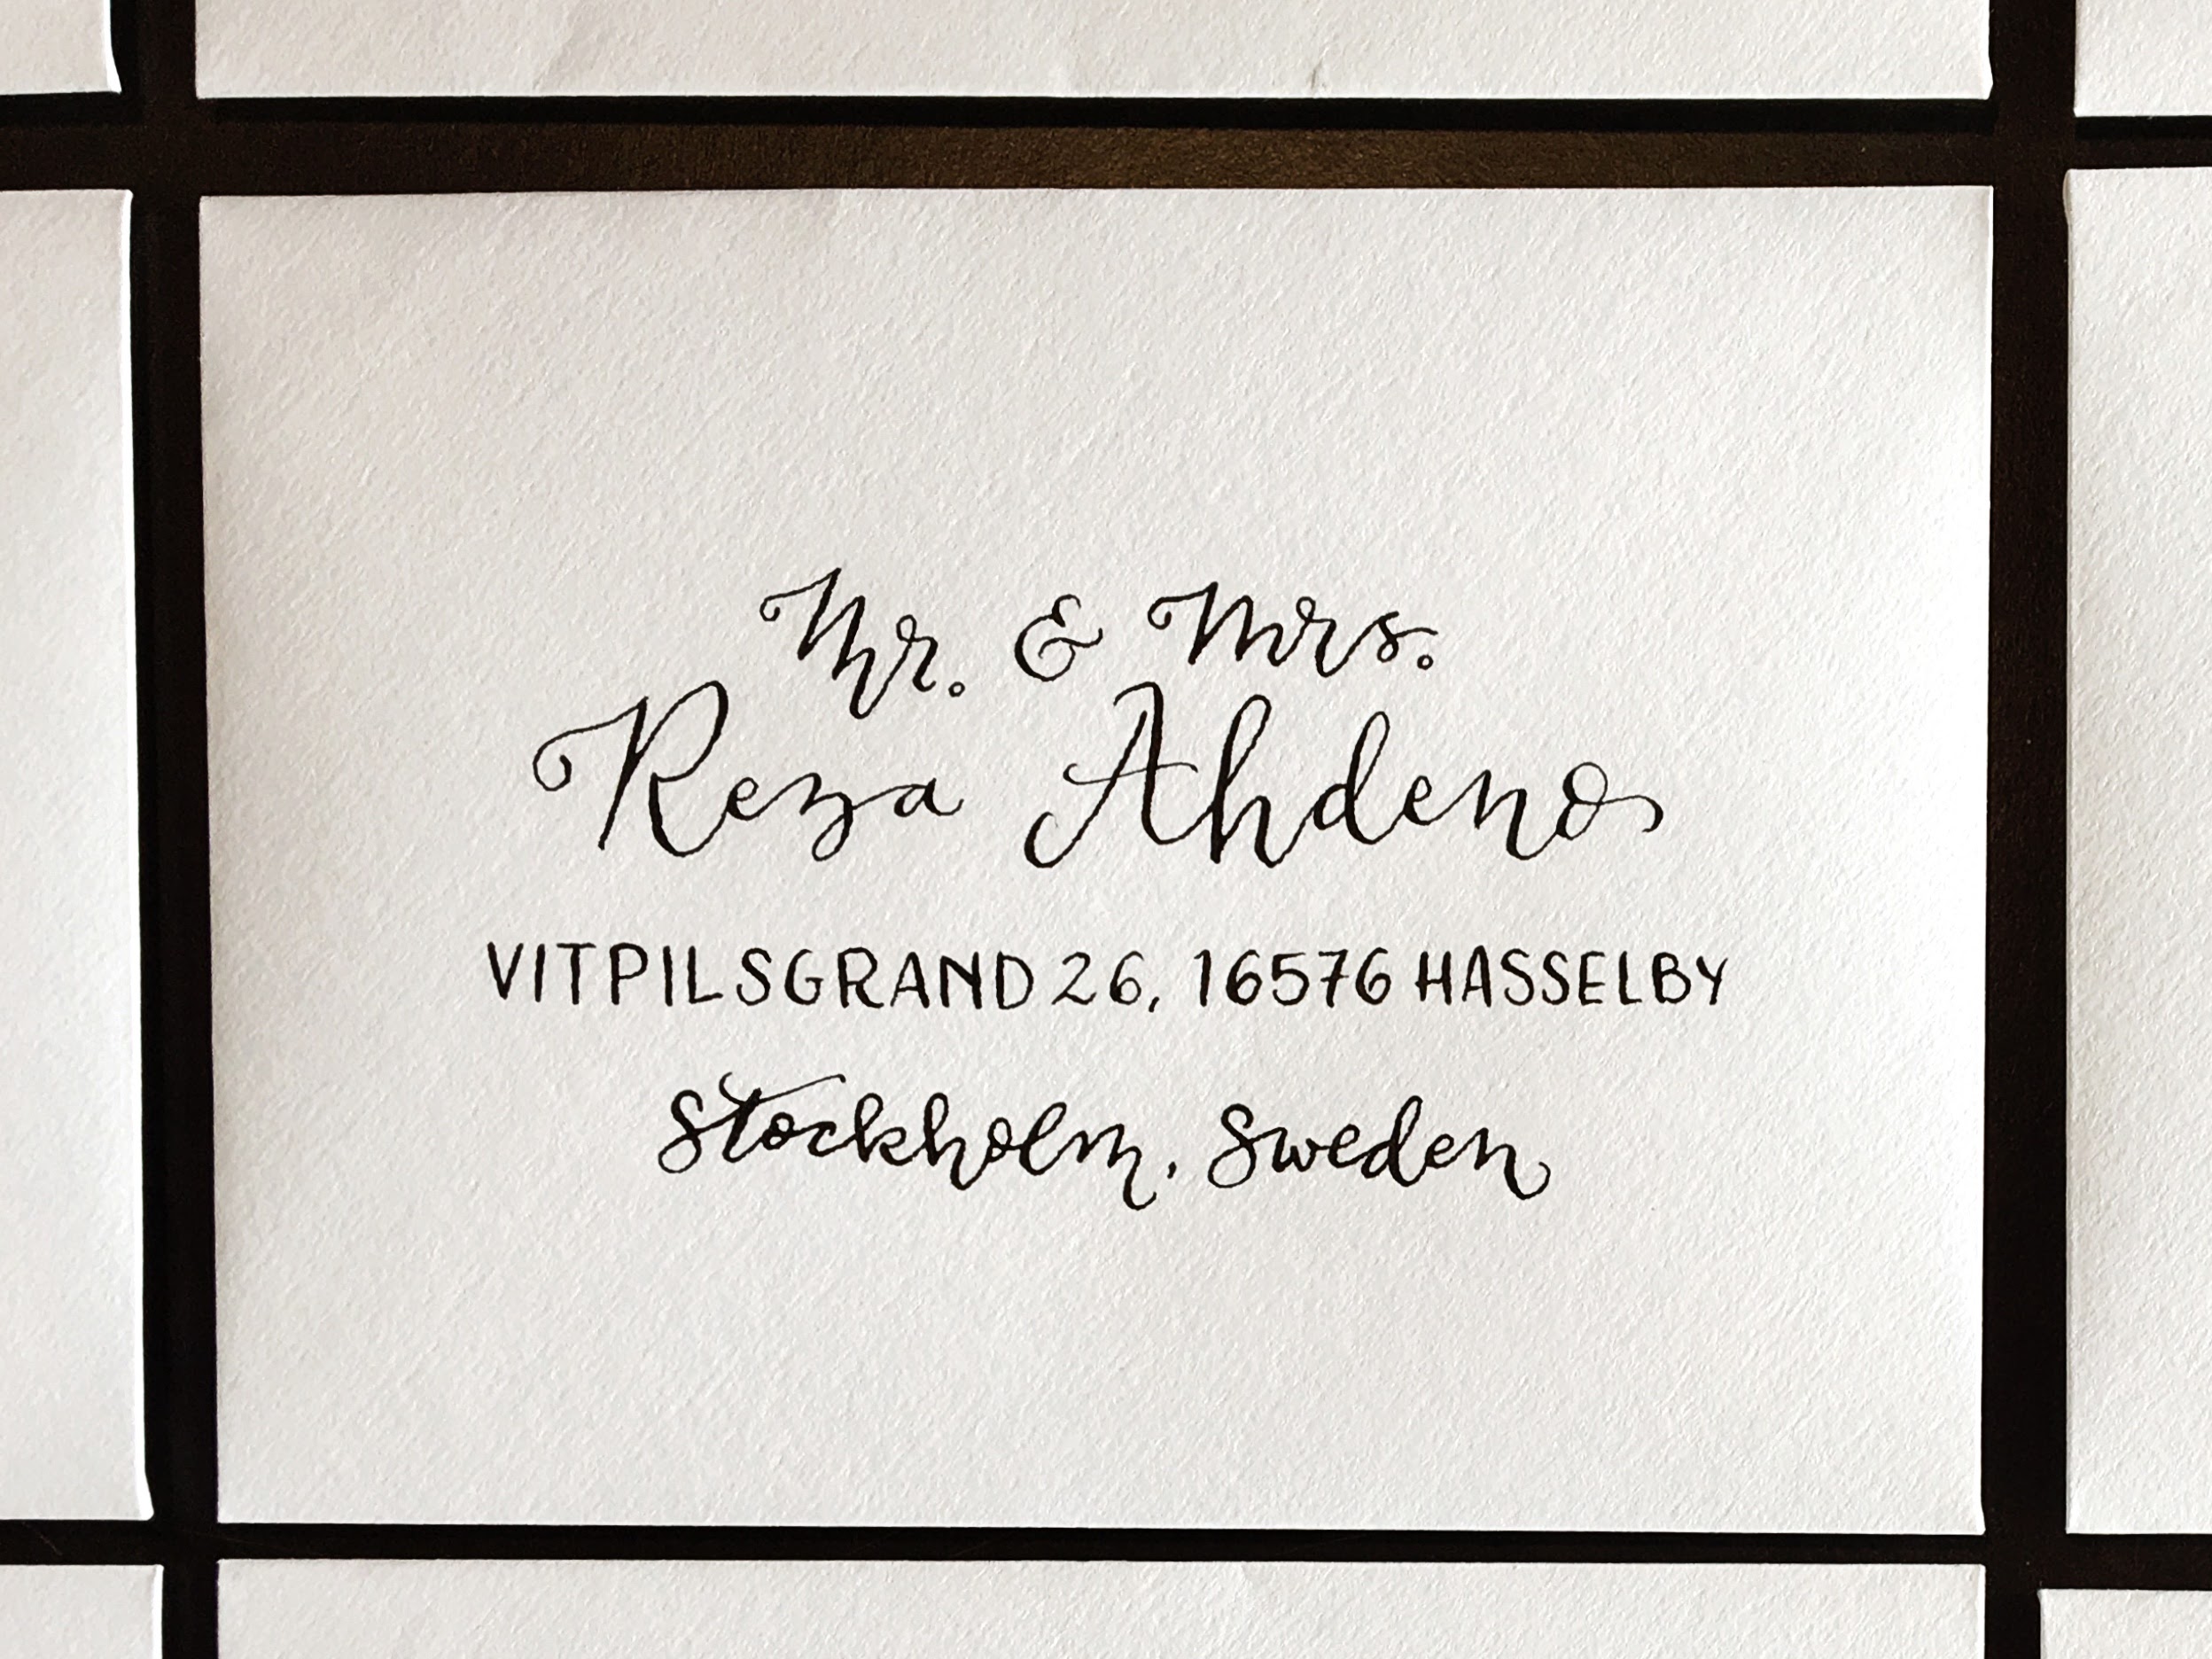 Mr. & Mrs.
Reza Ahdeno
VITPILSGRAND 26, 16576 HASSELBY
Stockholm, Sweden